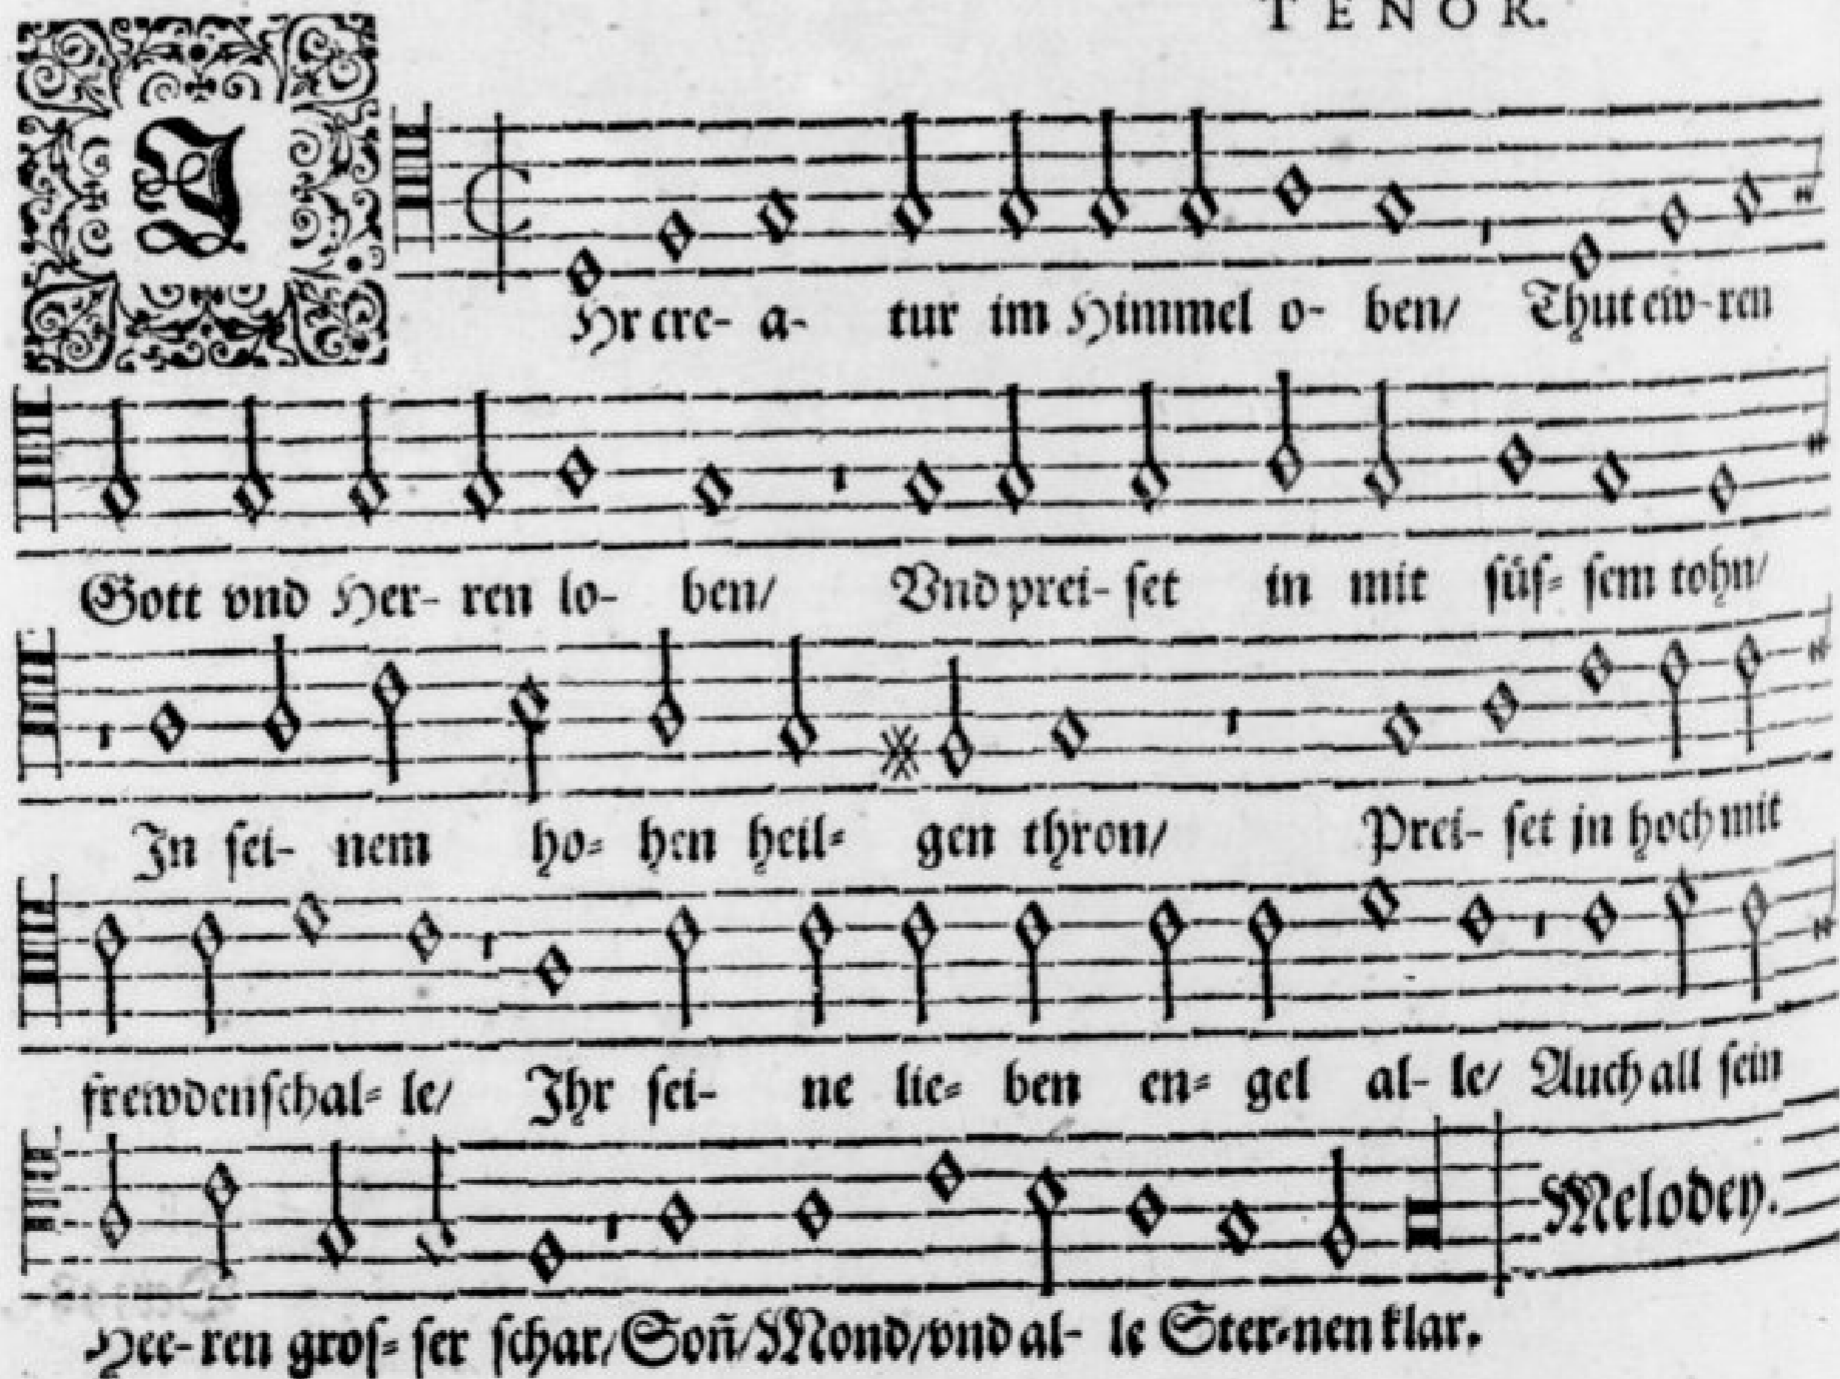 TENOR.
I
Hr cre- a- tur im Himmel o- ben/ Thut ew-ren
Gott vnd Her- ren lo- ben/ Vnd prei- set in mit süs- sem tohn/
In sei- nem ho- hen heil- gen thron/ Prei- set jn hoch mit
frewdenschal- le/ Ihr sei- ne lie- ben en- gel al- le/ Auch all sein
Melodey.
Hee-ren gros- ser schar/ Soñ/ Mond/ vnd al- le Ster-nen klar.